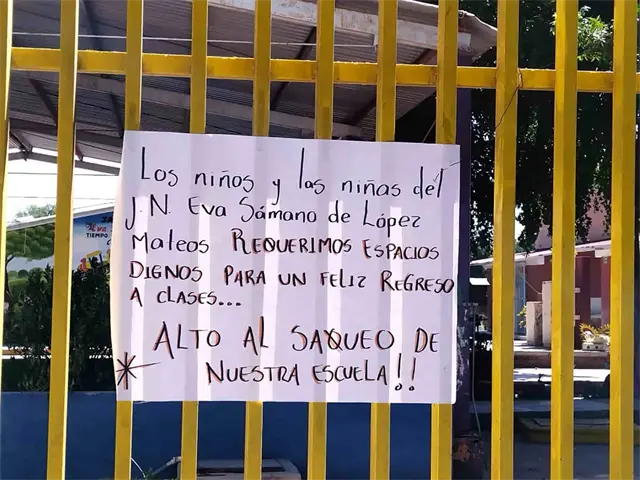 Los niños y las niñas del
J.N. Eva Sámano de López
Mateos REQUERIMOS ESPACIOS
DIGNOS PARA UN FELIZ REGRESO
A CLASES...
ALTO AL SAQUEO DE
* NUESTRA ESCUELA!!
TIEMPO